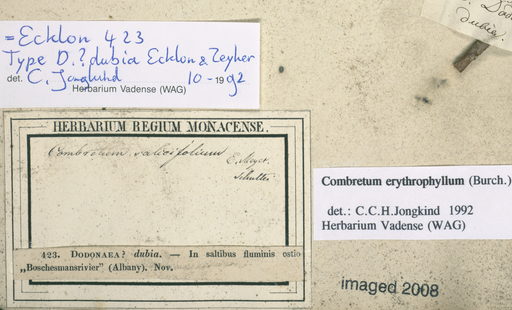 = Ecklon 423
Type D.? dubia Ecklon & Zeyher
det. C. Jongkind 10-1992
Herbarium Vadense (WAG)
dubia.
HERBARIUM REGIUM MONACENSE.
Combretum salicifolium E. Meyer
423. DODONAEA? dubia. — In saltibus fluminis ostio
„Boschesmansrivier" (Albany). Nov.
Combretum erythrophyllum (Burch.)
det.: C.C.H.Jongkind 1992
Herbarium Vadense (WAG)
imaged 2008